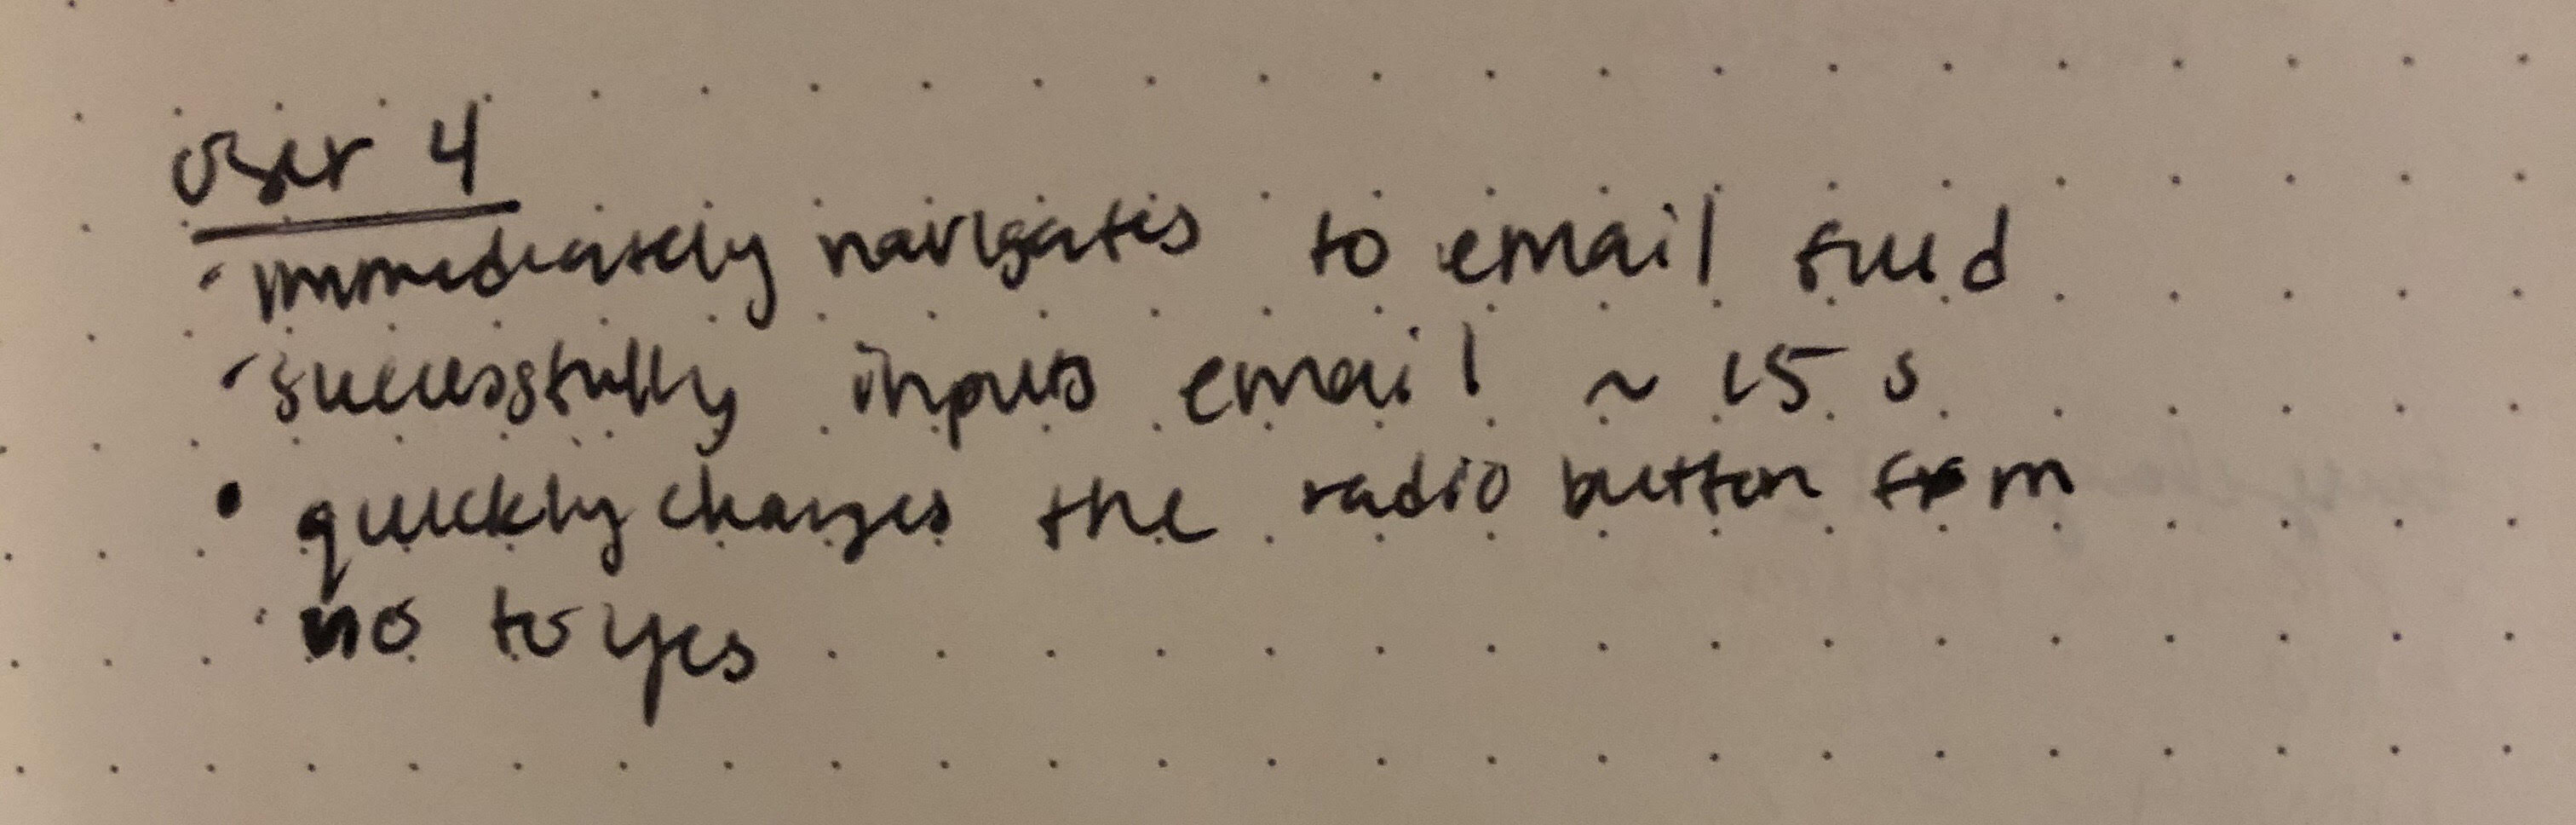 User 4
· immediately navigates to email field
· successfully inputs email ~ 15 s
• quickly changes the radio button from
no to yes